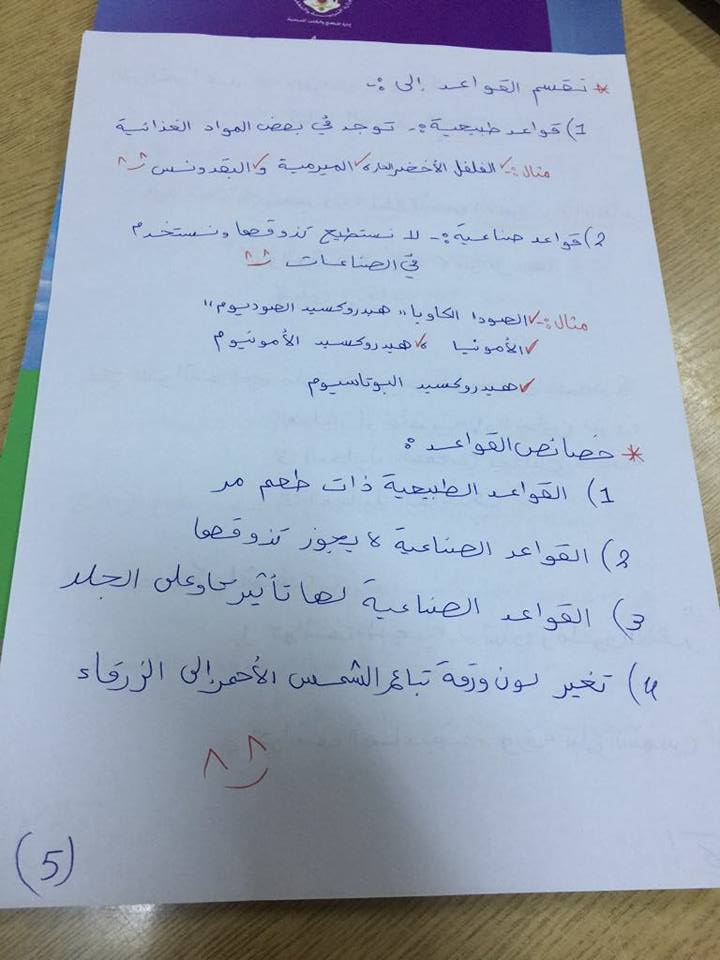 * تقسم القواعد إلى :-
1) قواعد طبيعية :- توجد في بعض المواد الغذائية
مثال :- الفلفل الأخضر الحار الميرمية و البقدونس
2) قواعد صناعية :- لا نستطيع تذوقها ونستخدم
في الصناعات
مثال :- الصودا الكاويا "هيدروكسيد الصوديوم"
الأمونيا هيدروكسيد الأمونيوم
هيدروكسيد البوتاسيوم
* خصائص القواعد :
1) القواعد الطبيعية ذات طعم مر
2) القواعد الصناعية لا يجوز تذوقها
3) القواعد الصناعية لها تأثير كاو على الجلد
4) تغير لون ورقة تباع الشمس الأحمر إلى الزرقاء
(5)